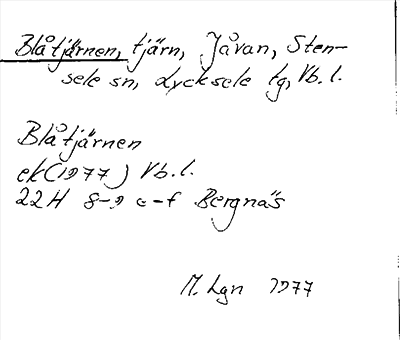 Blåtjärnen, tjärn, Jåvan, Sten-
sele sn, Lycksele tg, Vb. l.
Blåtjärnen
ek (1977) Vb. l.
22H 8-9 e-f Bergnäs
M. Lgn 1977